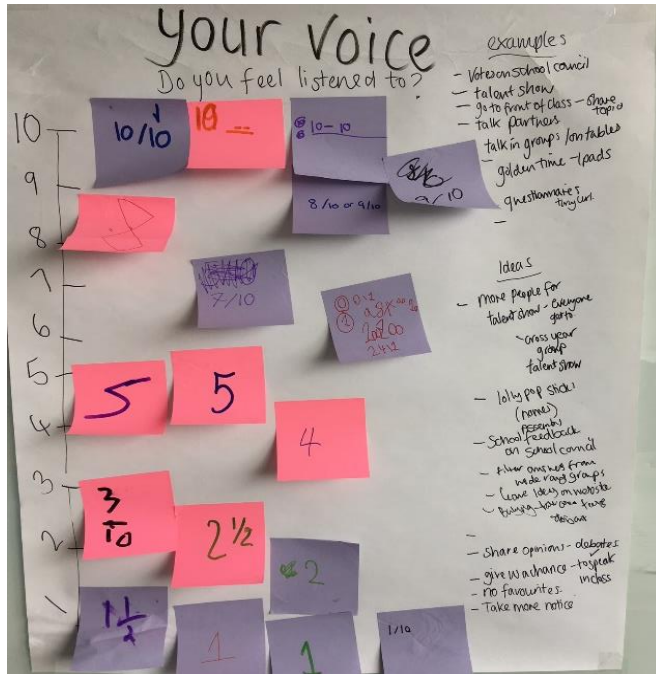 Your voice
Do you feel listened to?
10
9
8
7
6
5
4
3
2
1
10/10
10
10-10
9/10
8/10 or 9/10
7/10
5
5
4
3
10
2 1/2
2
1 1/2
1
1
1/10
examples
- Votes on school council
- talent show
- go to front of class - share
topic
- talk partners
talk in groups / on tables
- golden time - Ipads
- questionnaires
tiny url
-
Ideas
- more people for
talent show - everyone
cross year
group
talent show
- lollypop sticks
(names)
- School feedback
on school council
- answers from
wide range groups
- leave ideas on website
-
- share opinions - debates
- give us a chance - to speak
in class
- no favourites
- Take more notice